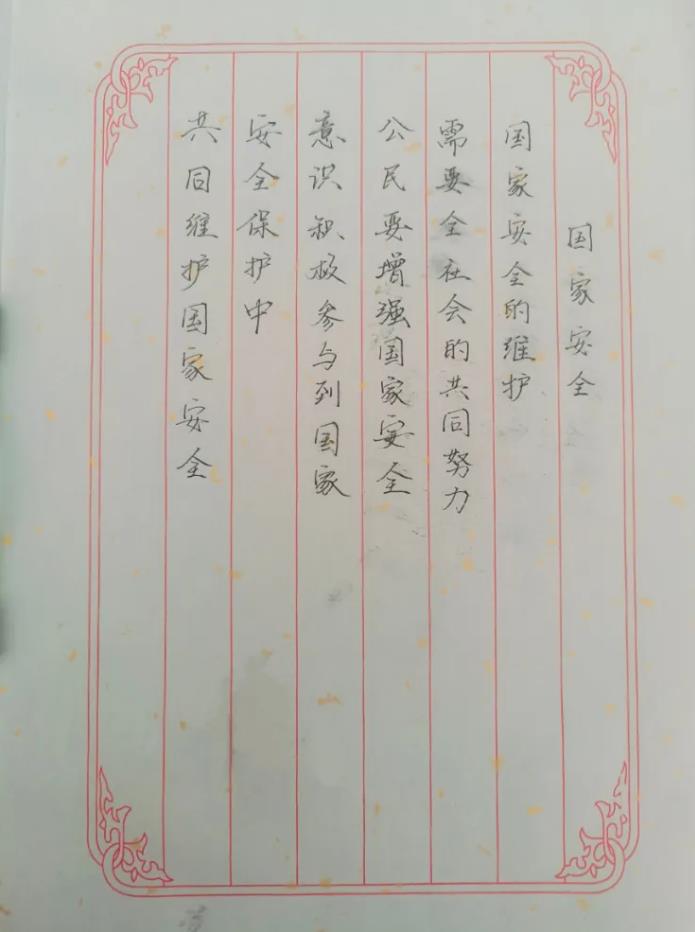 国家安全
国家安全的维护
需要全社会的共同努力
公民要增强国家安全
意识积极参与到国家
安全保护中
共同维护国家安全